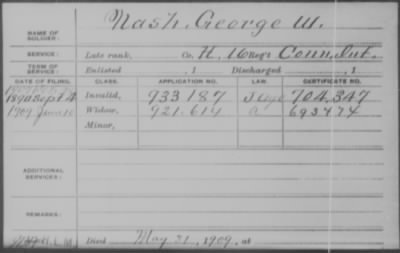 NAME OF SOLDIER: Nash, George W.
SERVICE: Late rank, Co. H, 16 Reg't Conn. Inf.
TERM OF SERVICE: Enlisted , 1 Discharged , 1
DATE OF FILING. CLASS. APPLICATION NO. LAW. CERTIFICATE NO.
1890 Sept 4 Invalid, 933187 704,347
1909 June 10 Widow, 921.614 693474
Minor,
ADDITIONAL SERVICES:
REMARKS:
Died May 31, 1909, at